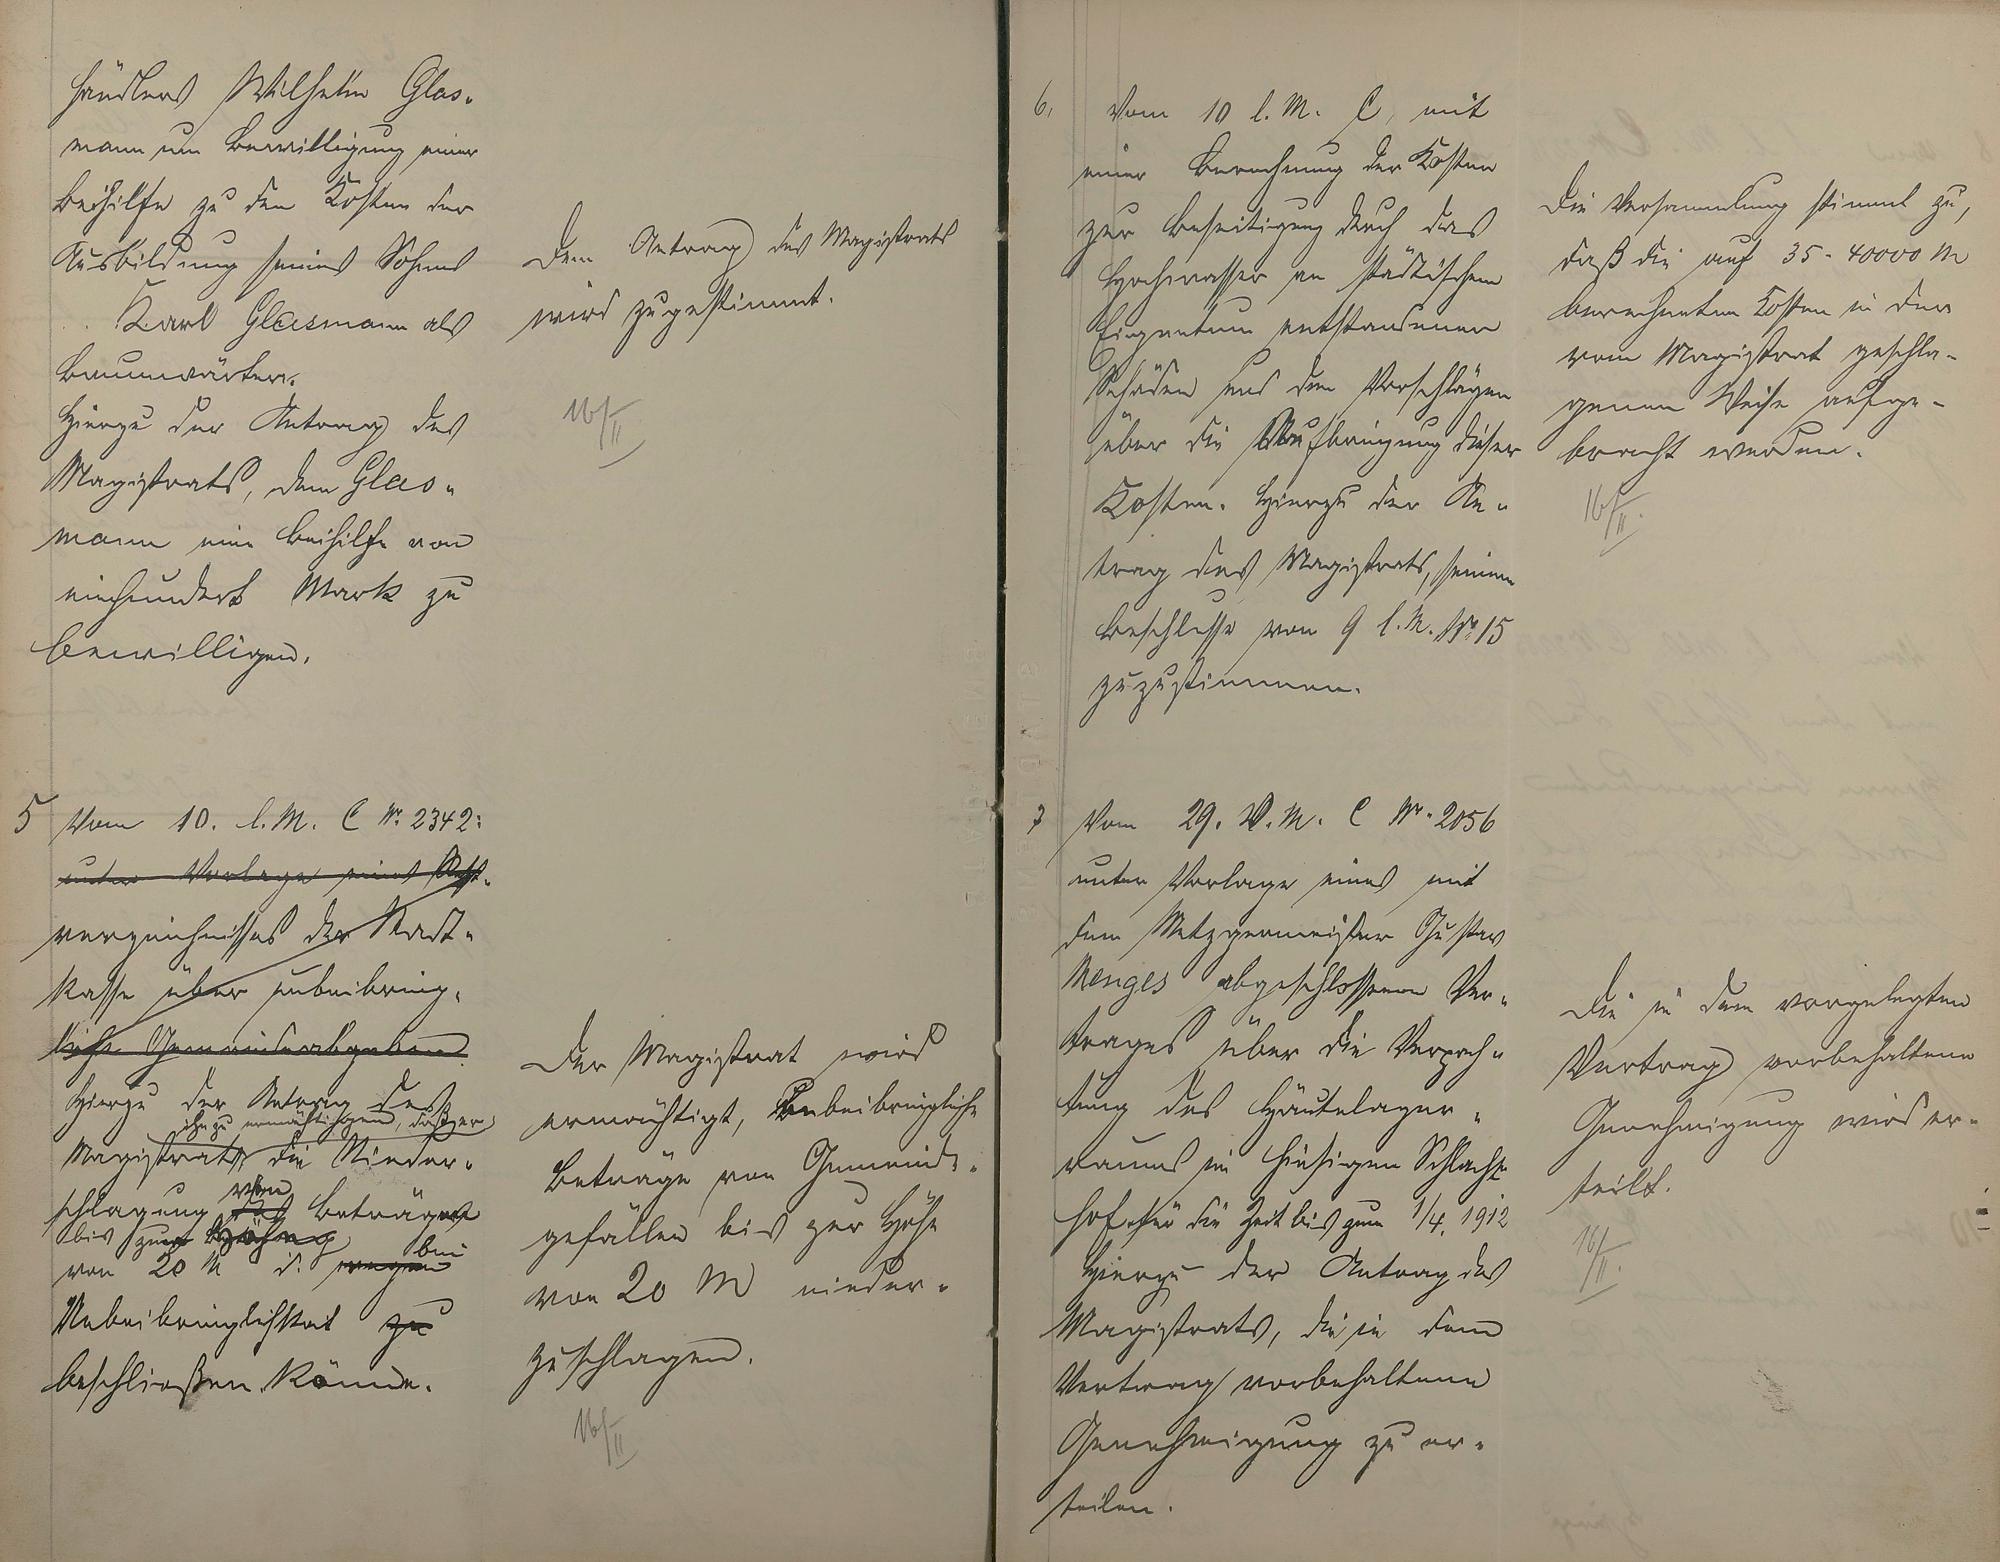 händlers Wilhelm Glas-
mann um Bewilligung einer
Beihilfe zu den Kosten der
Ausbildung seines Sohnes
Karl Glasmann als
Baumwärter.
Hierzu der Antrag des
Magistrats, dem Glas-
mann eine Beihilfe von
einhundert Mark zu
bewilligen.
Dem Antrag des Magistrats
wird zugestimmt.
16/II
5 Vom 10. l. M. C No. 2342:
unter Vorlage eines Rest-
verzeichnisses der Stadt-
kasse über unbeibring-
liche Gemeindeabgaben
Hierzu der Antrag des
ihn zu ermächtigen, daß er
Magistrats, die Nieder-
schlagung von Beträgen
bis zur Höhe
von 20 M d. wegen bei
Unbeibringlichkeit zu
beschließen könne.
Der Magistrat wird
ermächtigt, unbeibringliche
Beträge von Gemeinde-
gefällen bis zur Höhe
von 20 M nieder-
zuschlagen.
16/II
6. Vom 10 l. M. C, mit
einer Berechnung der Kosten
zur Beseitigung durch das
Hochwasser an städtischem
Eigentum entstandener
Schäden und den Vorschlägen
über die Aufbringung dieser
Kosten. Hierzu der An-
trag des Magistrats, seinem
Beschlusse von 9 l. M. No. 15
zuzustimmen.
Die Versammlung stimmt zu,
daß die auf 35-40000 M
berechneten Kosten in der
vom Magistrat geschla-
genen Weise aufge-
bracht werden.
16/II.
7 Vom 29. v. M. C No. 2056
unter Vorlage eines mit
dem Metzgermeister Gustav
Menges abgeschlossenen Ver-
trages über die Verpach-
tung des Häutelager-
raums im hiesigen Schlacht
hof für die Zeit bis zum 1/4. 1912
Hierzu der Antrag des
Magistrats, die in dem
Vertrag vorbehaltene
Genehmigung zu er-
teilen.
Die in dem vorgelegten
Vertrag vorbehaltene
Genehmigung wird er-
teilt.
16/II.